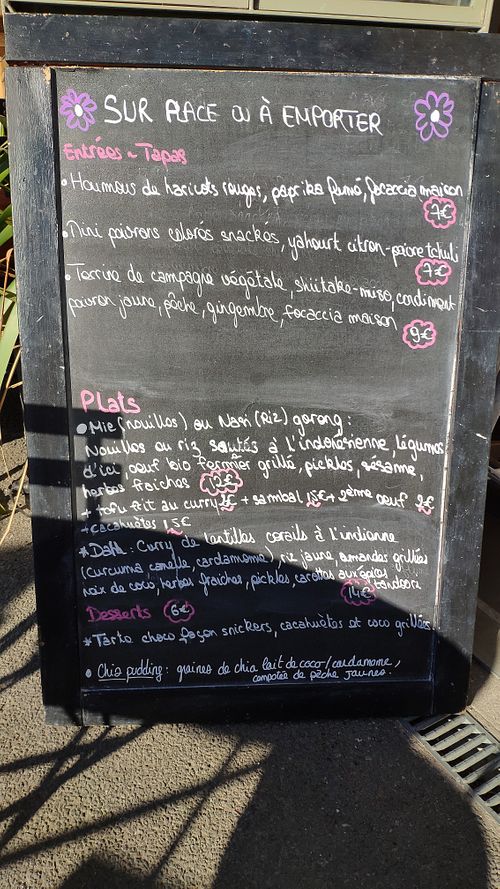 SUR PLACE OU À EMPORTER
Entrées ~ Tapas
• Houmous de haricots rouges, paprika fumé, focaccia maison
7€
• Mini poivrons colorés snackés, yahourt citron-poivre tchuli
7€
• Terrine de campagne végétale, shiitake-miso, condiment
poivron jaune, pêche, gingembre, focaccia maison
9€
Plats
• Mie (nouilles) ou Nasi (Riz) goreng :
Nouilles ou riz sautés à l'indonésienne, légumes
d'ici oeuf bio fermier grillé, pickles, sésame,
herbes fraiches 12€
+ tofu frit au curry + sambal 1,5€ + 2ème oeuf 2€
+ cacahuètes 1,5€
* Dahl : Curry de lentilles corails à l'indienne
(curcuma, canelle, cardamome), riz jaune, amandes grillées
noix de coco, herbes fraiches, pickles, carottes aux épices
14€ tandoori
Desserts 6€
* Tarte choco façon snickers, cacahuètes et coco grillés
• Chia pudding : graines de chia lait de coco/cardamome,
compotée de pêche jaunes.